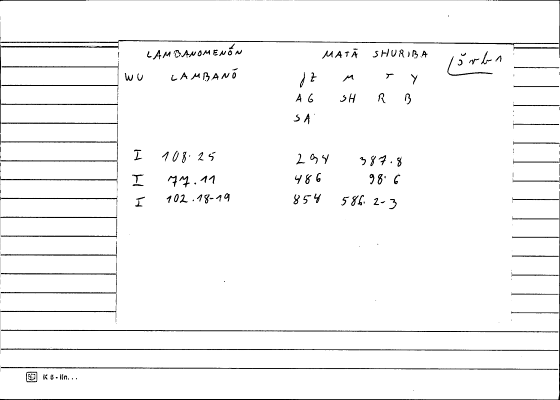 LAMBANOMENŌN MATĀ SHURIBA
WU LAMBANŌ JZ M T Y
AG SH R B
SA
I 108.25 294 387.8
I 77.11 486 98.6
I 102.18-19 854 586.2-3
K 6 - lin...